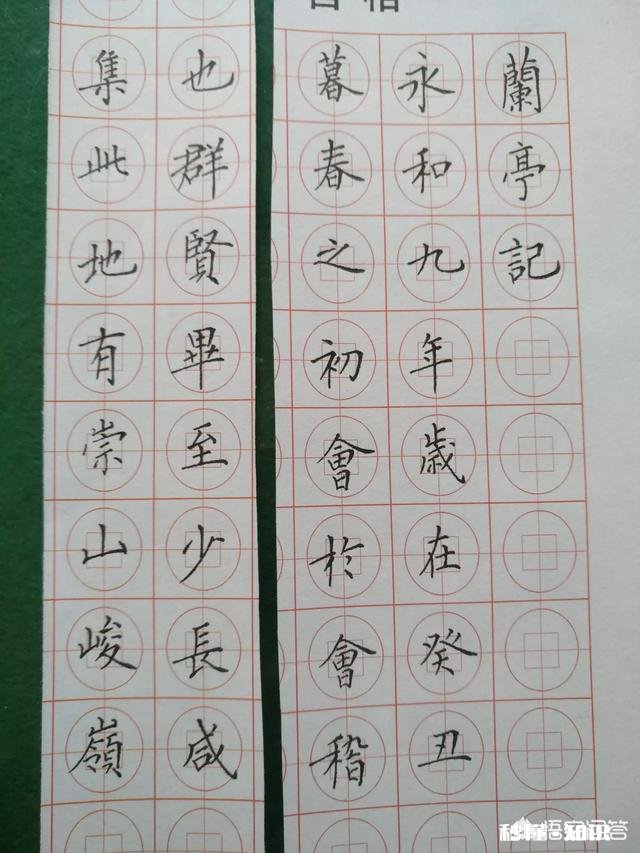 蘭亭記
永和九年歲在癸丑
暮春之初會於會稽
也群賢畢至少長咸
集此地有崇山峻嶺